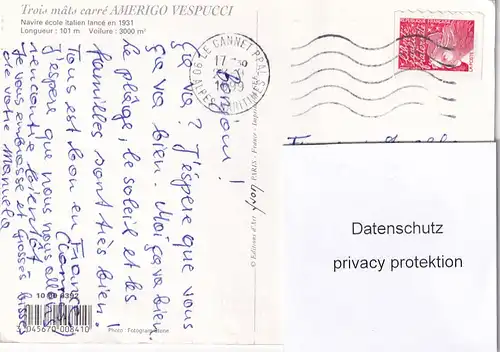 Trois mâts carré AMERIGO VESPUCCI
Navire école italien lancé en 1931
Longueur : 101 m Voilure : 3000 m²
Bonjour !
Ça va ? J'espère que vous
ça va bien. Moi ça va bien.
Le plage, le soleil et les
familles sont très bien !
Tous est bon en France
J'espère que nous nous
rencontre bientôt
Je vous embrasse et Grosses bises
de votre Manuela
LE CANNET PPAL
06 ALPES MARITIMES
17
REPUBLIQUE FRANÇAISE
LA POSTE
© Editions d'Art
PARIS - France
3 045670 008410
Photo :
Datenschutz
privacy protektion